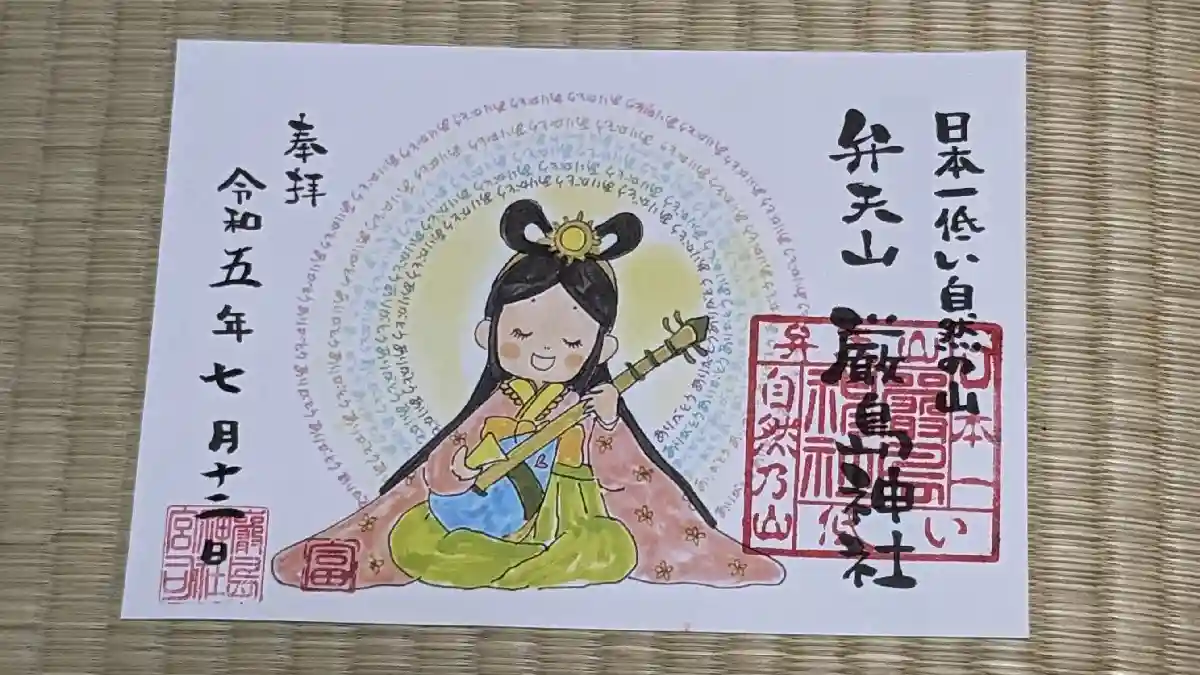 日本一低い自然の山
弁天山 厳島神社
弁天山
日本一
低い
自然乃山
ありがとう ありがとう ありがとう ありがとう ありがとう
奉拝
令和五年七月十二日
富
嚴島
神社
宮司